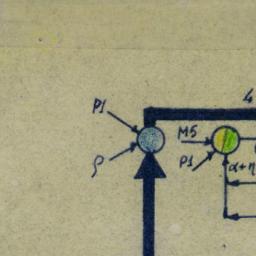 P1
4
M5
ρ
P1
α+η